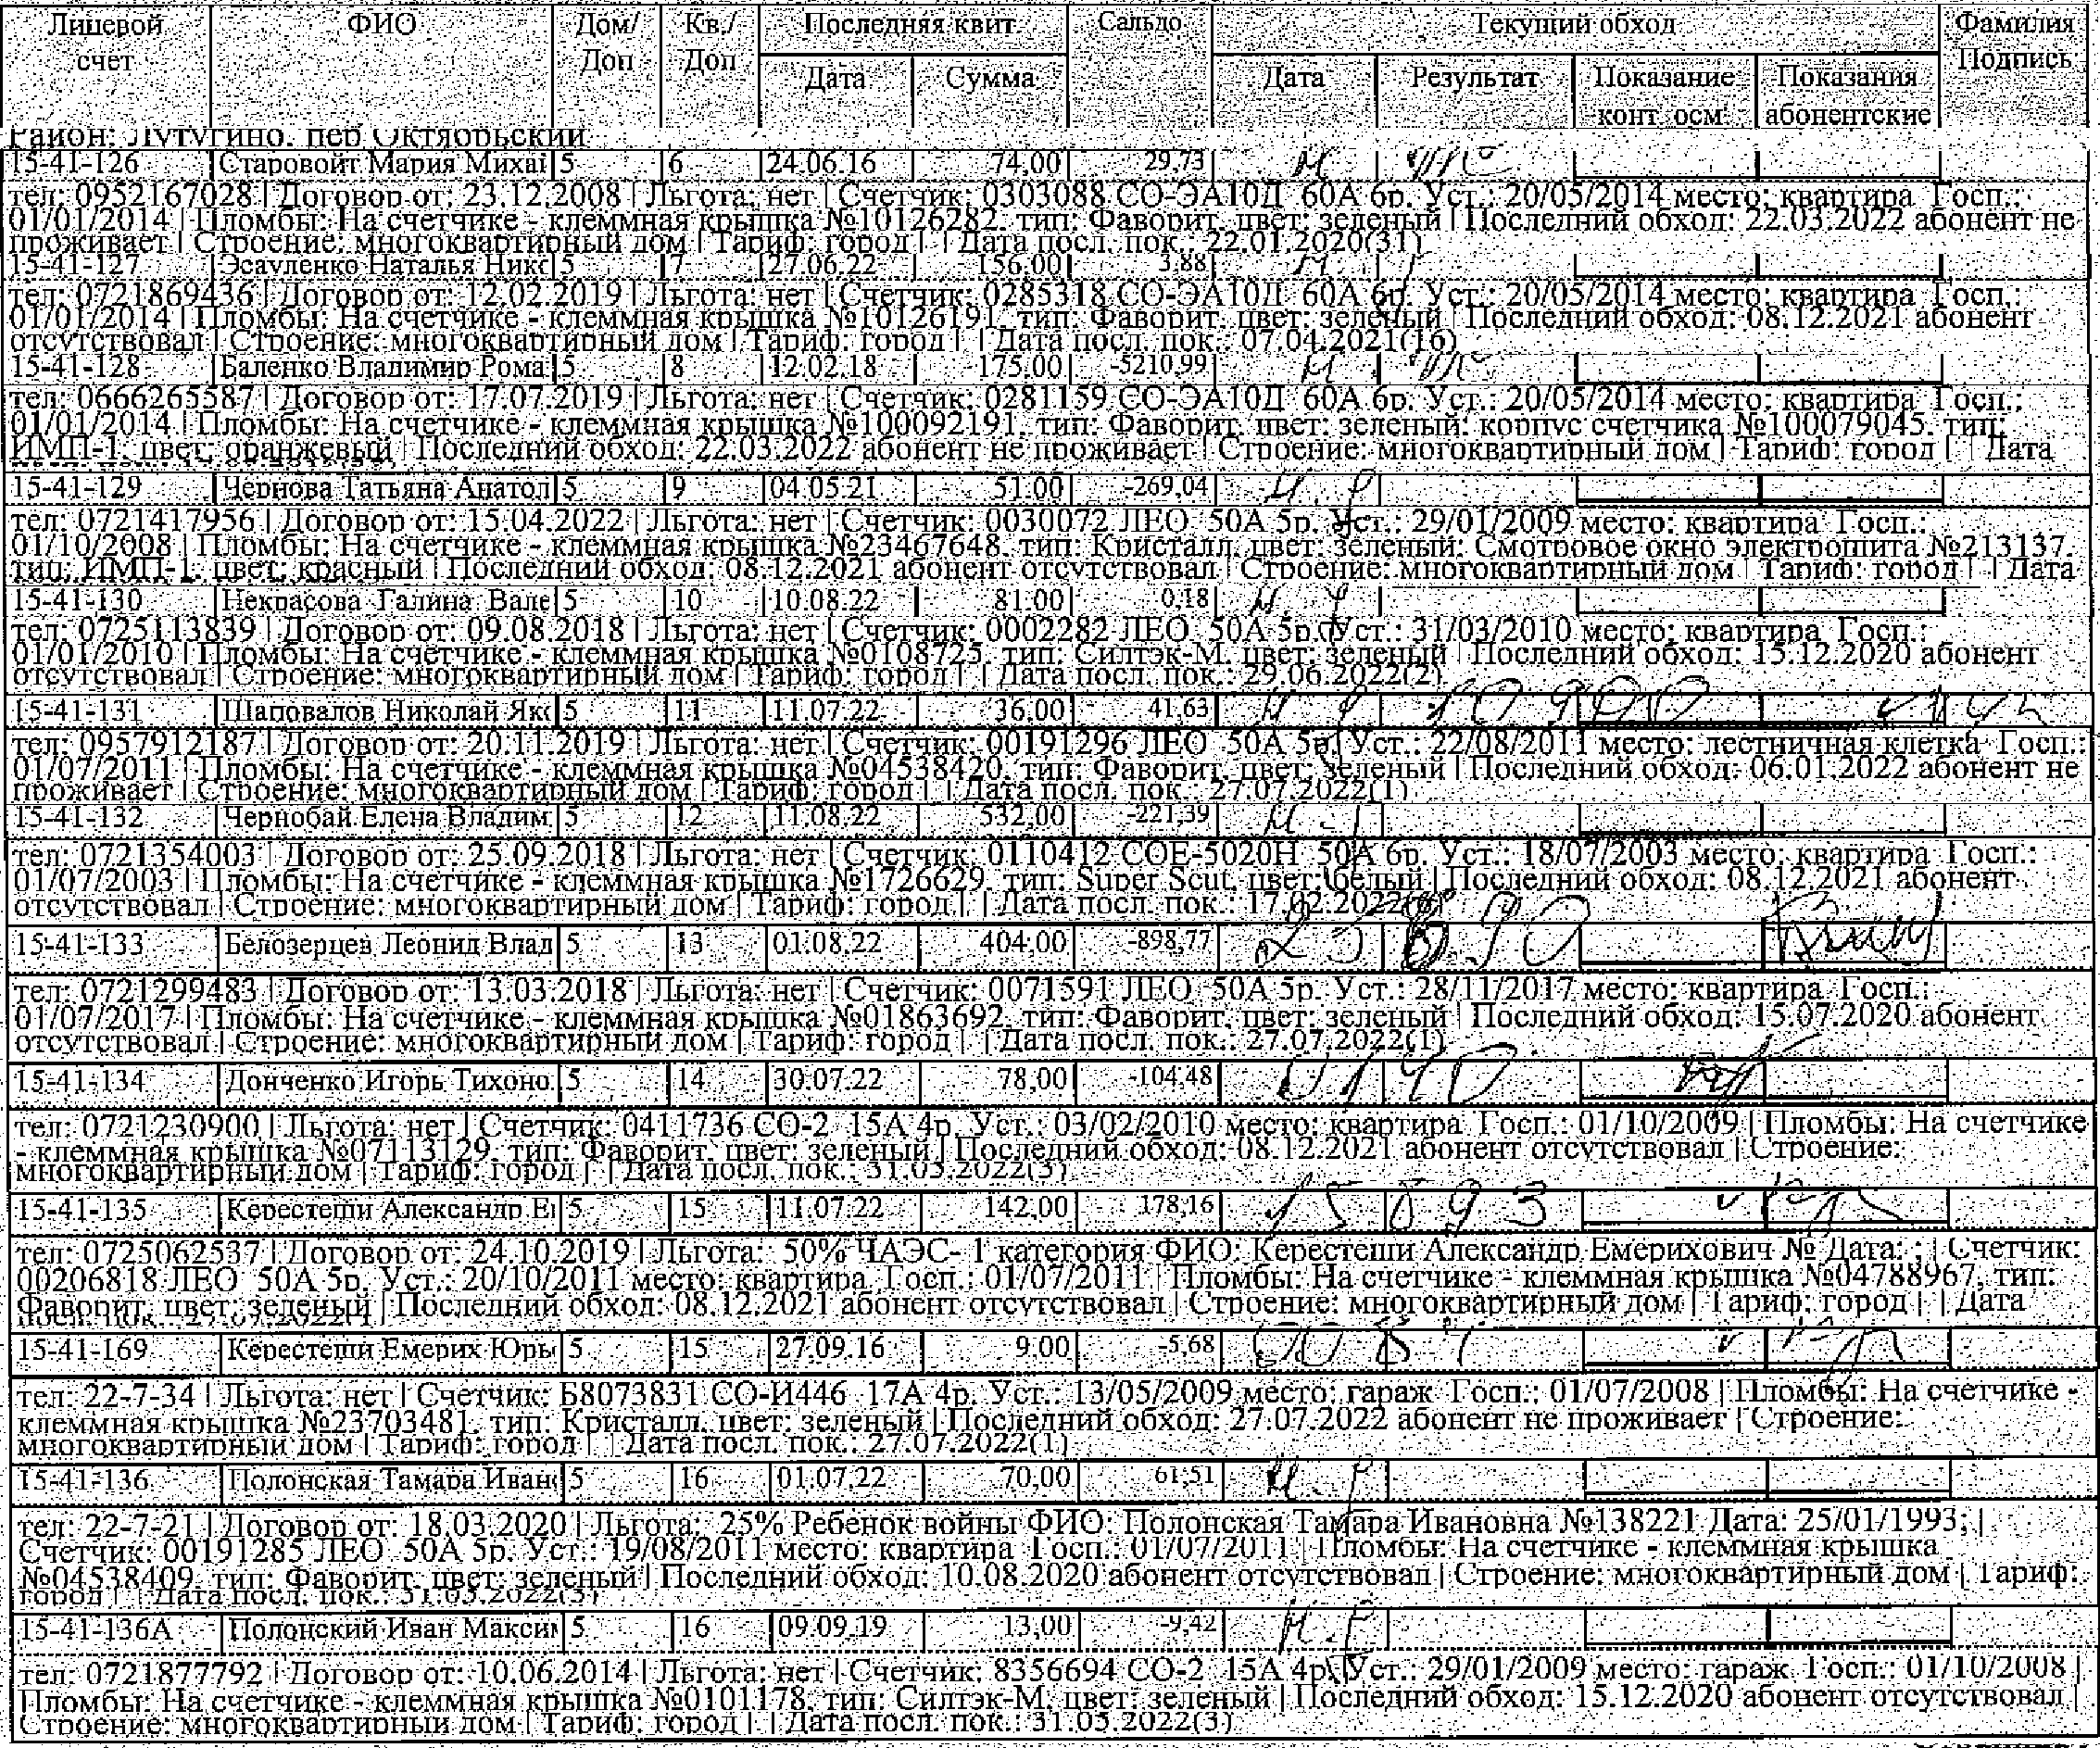 Лицевой счет ФИО Дом/Доп Кв./Доп Последняя квит Сальдо Текущий обход Фамилия Подпись
Дата Сумма Дата Результат Показание конт. осм. Показания абонентские
Район: Лутугино, пер Октябрьский
15-41-126 Старовойт Мария Михаі 5 6 24.06.16 74,00 29,73
тел: 0952167028 | Договор от: 23.12.2008 | Льгота: нет | Счетчик: 0303088 СО-ЭА10Д 60А 6р. Уст.: 20/05/2014 место: квартира Госп.:
01/01/2014 | Пломбы: На счетчике - клеммная крышка №10126282, тип: Фаворит, цвет: зеленый | Последний обход: 22.03.2022 абонент не
проживает | Строение: многоквартирный дом | Тариф: город | | Дата посл. пок.: 22.01.2020(31)
15-41-127 Эсауленко Наталья Никс 5 7 27.06.22 156,00 3,88
тел: 0721869436 | Договор от: 12.02.2019 | Льгота: нет | Счетчик: 0285318 СО-ЭА10Д 60А 6р. Уст.: 20/05/2014 место: квартира Госп.:
01/01/2014 | Пломбы: На счетчике - клеммная крышка №10126191, тип: Фаворит, цвет: зеленый | Последний обход: 08.12.2021 абонент
отсутствовал | Строение: многоквартирный дом | Тариф: город | | Дата посл. пок.: 07.04.2021(16)
15-41-128 Баленко Владимир Рома 5 8 12.02.18 175,00 -5210,99
тел: 0666265587 | Договор от: 17.07.2019 | Льгота: нет | Счетчик: 0281159 СО-ЭА10Д 60А 6р. Уст.: 20/05/2014 место: квартира Госп.:
01/01/2014 | Пломбы: На счетчике - клеммная крышка №100092191, тип: Фаворит, цвет: зеленый; корпус счетчика №100079045, тип:
ИМП-1, цвет: оранжевый | Последний обход: 22.03.2022 абонент не проживает | Строение: многоквартирный дом | Тариф: город | | Дата
15-41-129 Чернова Татьяна Анатол 5 9 04.05.21 51,00 -269,04 н.р
тел: 0721417956 | Договор от: 15.04.2022 | Льгота: нет | Счетчик: 0030072 ЛЕО 50А 5р. Уст.: 29/01/2009 место: квартира Госп.:
01/10/2008 | Пломбы: На счетчике - клеммная крышка №23467648, тип: Кристалл, цвет: зеленый; Смотровое окно электрощита №213137,
тип: ИМП-1, цвет: красный | Последний обход: 08.12.2021 абонент отсутствовал | Строение: многоквартирный дом | Тариф: город | | Дата
15-41-130 Некрасова Галина Вале 5 10 10.08.22 81,00 0,18
тел: 0725113839 | Договор от: 09.08.2018 | Льгота: нет | Счетчик: 0002282 ЛЕО 50А 5р. Уст.: 31/03/2010 место: квартира Госп.:
01/01/2010 | Пломбы: На счетчике - клеммная крышка №0108725, тип: Силтэк-М, цвет: зеленый | Последний обход: 15.12.2020 абонент
отсутствовал | Строение: многоквартирный дом | Тариф: город | | Дата посл. пок.: 29.06.2022(2)
15-41-131 Шаповалов Николай Якс 5 11 11.07.22 36,00 41,63
тел: 0957912187 | Договор от: 20.11.2019 | Льгота: нет | Счетчик: 00191296 ЛЕО 50А 5р. Уст.: 22/08/2011 место: лестничная клетка Госп.:
01/07/2011 | Пломбы: На счетчике - клеммная крышка №04538420, тип: Фаворит, цвет: зеленый | Последний обход: 06.01.2022 абонент не
проживает | Строение: многоквартирный дом | Тариф: город | | Дата посл. пок.: 27.07.2022(1)
15-41-132 Чернобай Елена Владим 5 12 11.08.22 532,00 -221,39
тел: 0721354003 | Договор от: 25.09.2018 | Льгота: нет | Счетчик: 0110412 СОЕ-5020Н 50А 6р. Уст.: 18/07/2003 место: квартира Госп.:
01/07/2003 | Пломбы: На счетчике - клеммная крышка №1726629, тип: Super Scut, цвет: белый | Последний обход: 08.12.2021 абонент
отсутствовал | Строение: многоквартирный дом | Тариф: город | | Дата посл. пок.: 17.02.2022(6)
15-41-133 Белозерцев Леонид Влад 5 13 01.08.22 404,00 -898,77
тел: 0721299483 | Договор от: 13.03.2018 | Льгота: нет | Счетчик: 0071591 ЛЕО 50А 5р. Уст.: 28/11/2017 место: квартира Госп.:
01/07/2017 | Пломбы: На счетчике - клеммная крышка №01863692, тип: Фаворит, цвет: зеленый | Последний обход: 15.07.2020 абонент
отсутствовал | Строение: многоквартирный дом | Тариф: город | | Дата посл. пок.: 27.07.2022(1)
15-41-134 Донченко Игорь Тихоно 5 14 30.07.22 78,00 -104,48
тел: 0721230900 | Льгота: нет | Счетчик: 0411736 СО-2 15А 4р. Уст.: 03/02/2010 место: квартира Госп.: 01/10/2009 | Пломбы: На счетчике
- клеммная крышка №07113129, тип: Фаворит, цвет: зеленый | Последний обход: 08.12.2021 абонент отсутствовал | Строение:
многоквартирный дом | Тариф: город | | Дата посл. пок.: 31.03.2022(3)
15-41-135 Керестеши Александр Еı 5 15 11.07.22 142,00 178,16 15893
тел: 0725062537 | Договор от: 24.10.2019 | Льгота: 50% ЧАЭС- 1 категория ФИО: Керестеши Александр Емерихович № Дата: ; | Счетчик:
00206818 ЛЕО 50А 5р. Уст.: 20/10/2011 место: квартира Госп.: 01/07/2011 | Пломбы: На счетчике - клеммная крышка №04788967, тип:
Фаворит, цвет: зеленый | Последний обход: 08.12.2021 абонент отсутствовал | Строение: многоквартирный дом | Тариф: город | | Дата
15-41-169 Керестеши Емерих Юрь 5 15 27.09.16 9,00 -5,68
тел: 22-7-34 | Льгота: нет | Счетчик: Б8073831 СО-И446 17А 4р. Уст.: 13/05/2009 место: гараж Госп.: 01/07/2008 | Пломбы: На счетчике -
клеммная крышка №23703481, тип: Кристалл, цвет: зеленый | Последний обход: 27.07.2022 абонент не проживает | Строение:
многоквартирный дом | Тариф: город | | Дата посл. пок.: 27.07.2022(1)
15-41-136 Полонская Тамара Иван 5 16 01.07.22 70,00 61,51 н.р
тел: 22-7-21 | Договор от: 18.03.2020 | Льгота: 25% Ребенок войны ФИО: Полонская Тамара Ивановна №138221 Дата: 25/01/1993; |
Счетчик: 00191285 ЛЕО 50А 5р. Уст.: 19/08/2011 место: квартира Госп.: 01/07/2011 | Пломбы: На счетчике - клеммная крышка
№04538409, тип: Фаворит, цвет: зеленый | Последний обход: 10.08.2020 абонент отсутствовал | Строение: многоквартирный дом | Тариф:
город | | Дата посл. пок.: 31.03.2022(3)
15-41-136А Полонский Иван Макси 5 16 09.09.19 13,00 -9,42 н.р
тел: 0721877792 | Договор от: 10.06.2014 | Льгота: нет | Счетчик: 8356694 СО-2 15А 4р. Уст.: 29/01/2009 место: гараж Госп.: 01/10/2008 |
Пломбы: На счетчике - клеммная крышка №0101178, тип: Силтэк-М, цвет: зеленый | Последний обход: 15.12.2020 абонент отсутствовал |
Строение: многоквартирный дом | Тариф: город | | Дата посл. пок.: 31.05.2022(3)